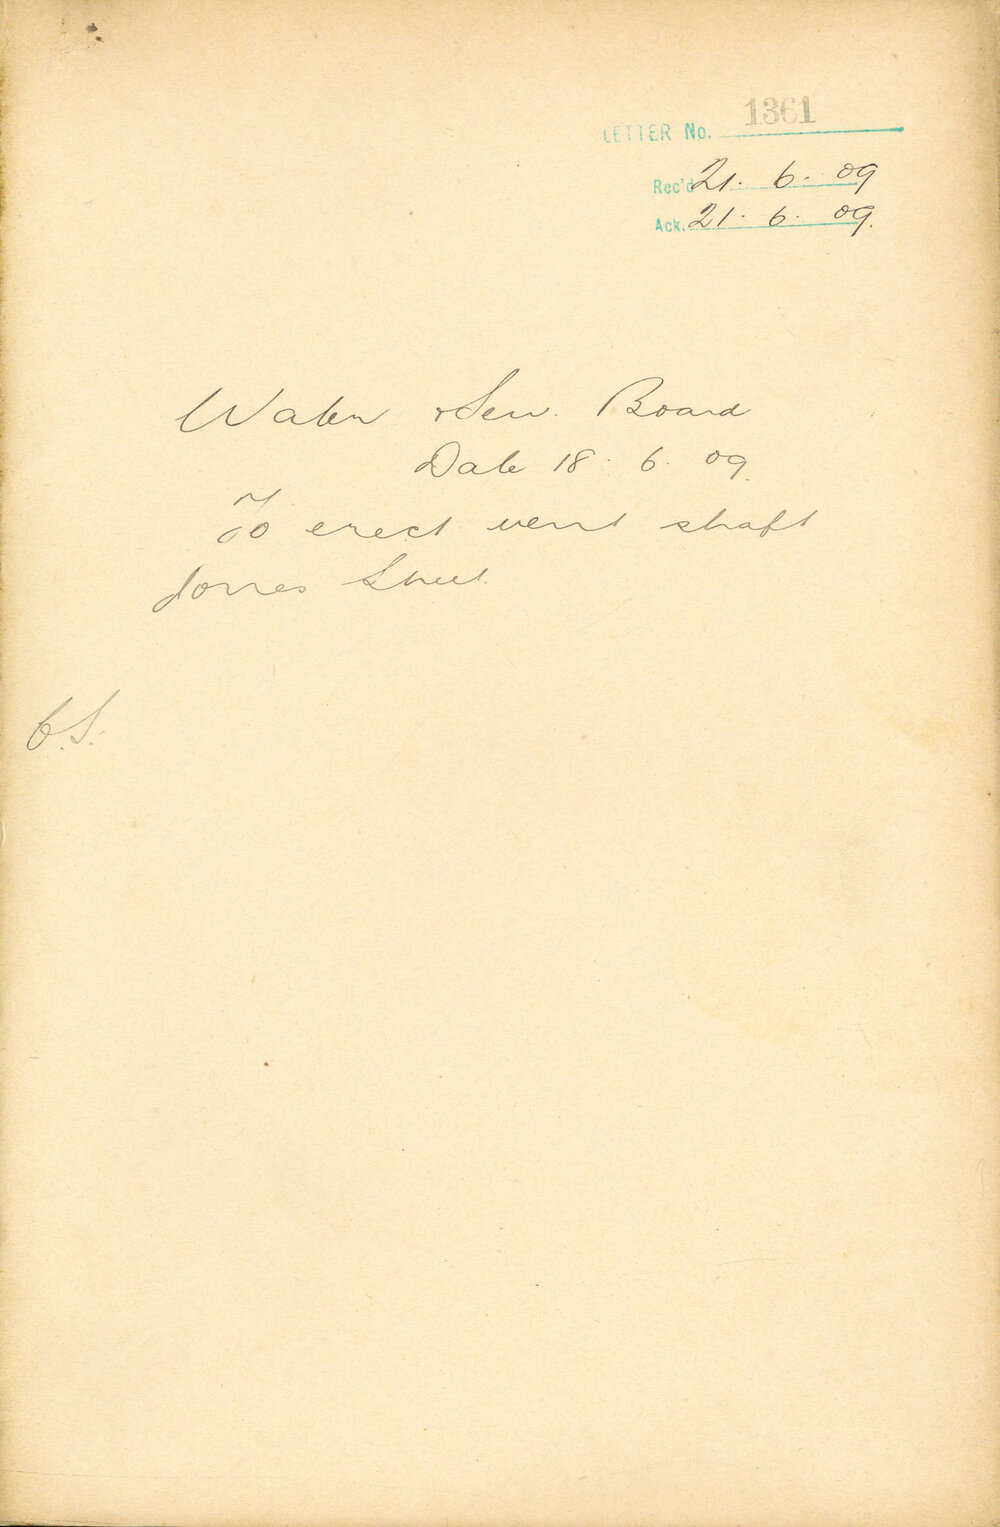 LETTER No. 1361
Rec'd 21. 6. 09
Ack. 21. 6. 09.
Water & Sew. Board
Date 18. 6. 09.
To erect vent shaft
Jones Street.
C.S.